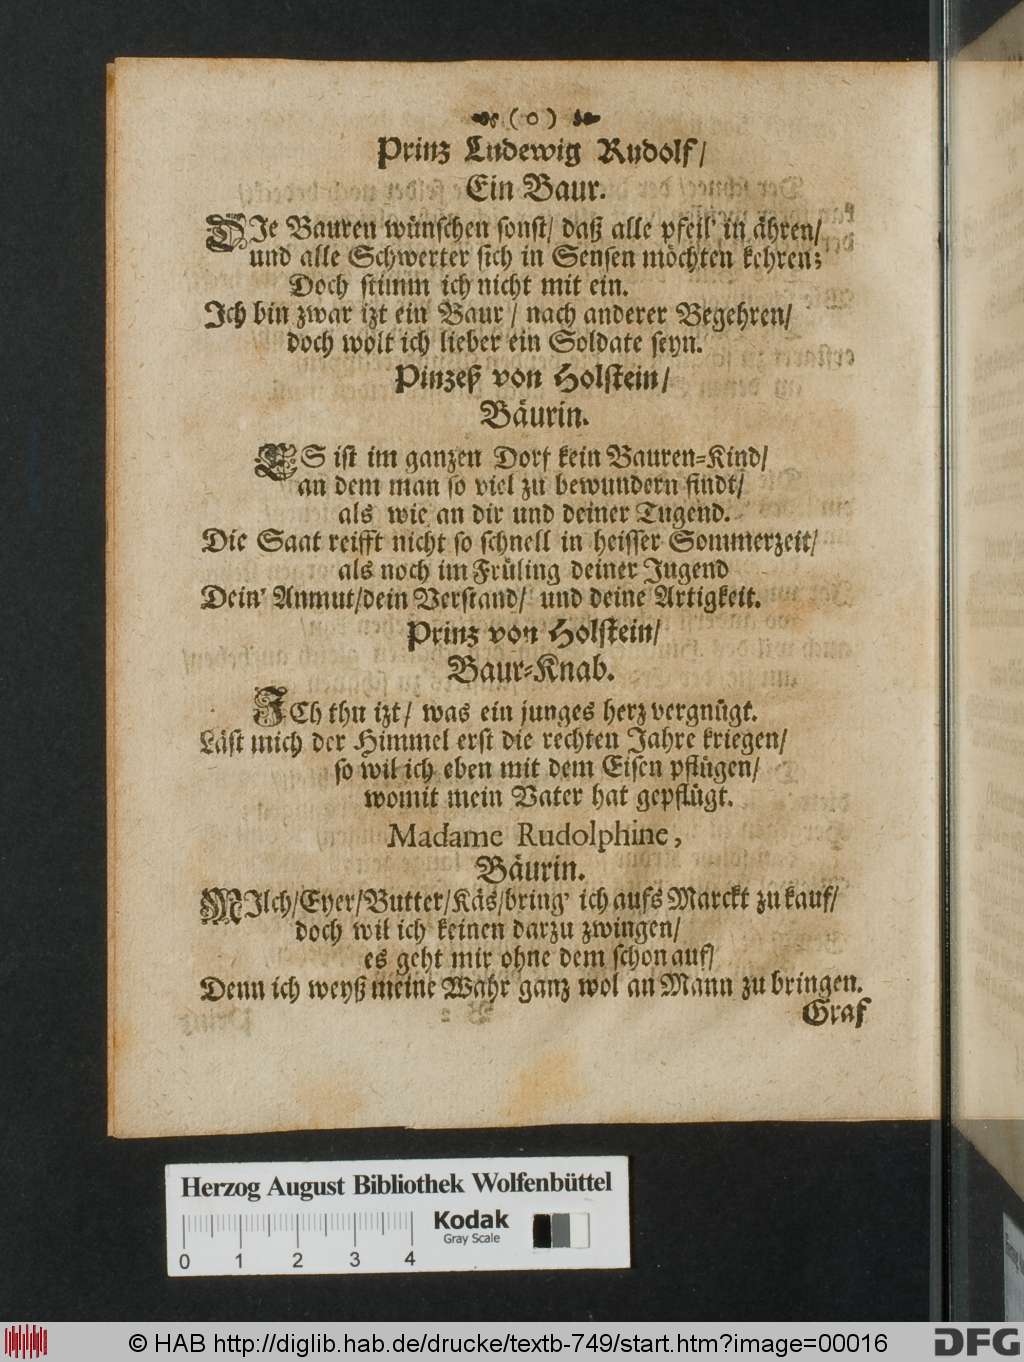 (o)
Prinz Ludewig Rudolf/
Ein Baur.
DJe Bauren wünschen sonst/ daß alle pfeil' in ähren/
und alle Schwerter sich in Sensen möchten kehren;
Doch stimm ich nicht mit ein.
Ich bin zwar izt ein Baur / nach anderer Begehren/
doch wolt ich lieber ein Soldate seyn.
Pinzeß von Holstein/
Bäurin.
ES ist im ganzen Dorf kein Bauren-Kind/
an dem man so viel zu bewundern findt/
als wie an dir und deiner Tugend.
Die Saat reifft nicht so schnell in heisser Sommerzeit/
als noch im Früling deiner Jugend
Dein' Anmut/dein Verstand/ und deine Artigkeit.
Prinz von Holstein/
Baur-Knab.
JCh thu izt/ was ein junges herz vergnügt.
Läst mich der Himmel erst die rechten Jahre kriegen/
so wil ich eben mit dem Eisen pflügen/
womit mein Vater hat gepflügt.
Madame Rudolphine,
Bäurin.
MJlch/Eyer/Butter/Käs/bring' ich aufs Marckt zu kauf/
doch wil ich keinen darzu zwingen/
es geht mir ohne dem schon auf/
Denn ich weyß meine Wahr ganz wol an Mann zu bringen.
Graf
Herzog August Bibliothek Wolfenbüttel
Kodak
Gray Scale
0 1 2 3 4
© HAB http://diglib.hab.de/drucke/textb-749/start.htm?image=00016
DFG